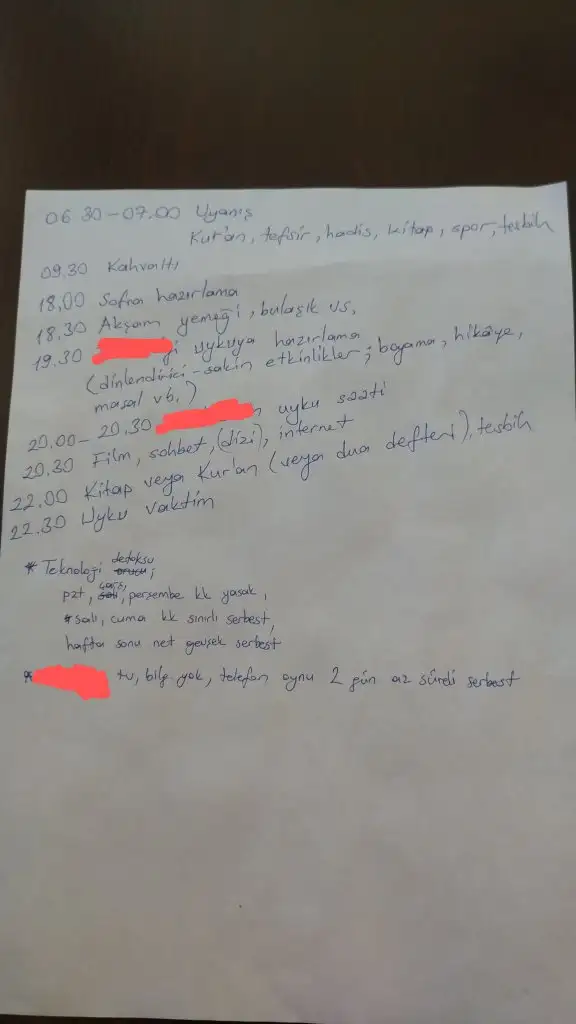 06.30-07.00 Uyanış
Kur'an, tefsir, hadis, kitap, spor, tesbih
09.30 Kahvaltı
18,00 Sofra hazırlama
18.30 Akşam yemeği, bulaşık vs,
19.30 yi uykuya hazırlama
(dinlendirici-sakin etkinlikler; boyama, hikâye,
masal vb.)
20.00-20.30 n uyku saati
20.30 Film, sohbet, (dizi), internet
22.00 Kitap veya Kur'an (veya dua defteri), tesbih
22.30 Uyku vaktim
* Teknoloji detoksu
pzt, çarş, perşembe kk yasak,
* salı, cuma kk sınırlı serbest,
hafta sonu net gevşek serbest
* tv, bilg. yok, telefon oyunu 2 gün az süreli serbest